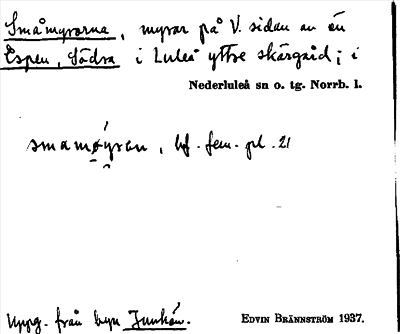 Småmyrarna, myrar på V. sidan av ön
Espen, Södra i Luleå yttre skärgård; i
Nederluleå sn o. tg. Norrb. l.
smamøyran, bf. fem. pl. 21
Uppg. från byn Junkön.
EDVIN BRÄNNSTRÖM 1937.